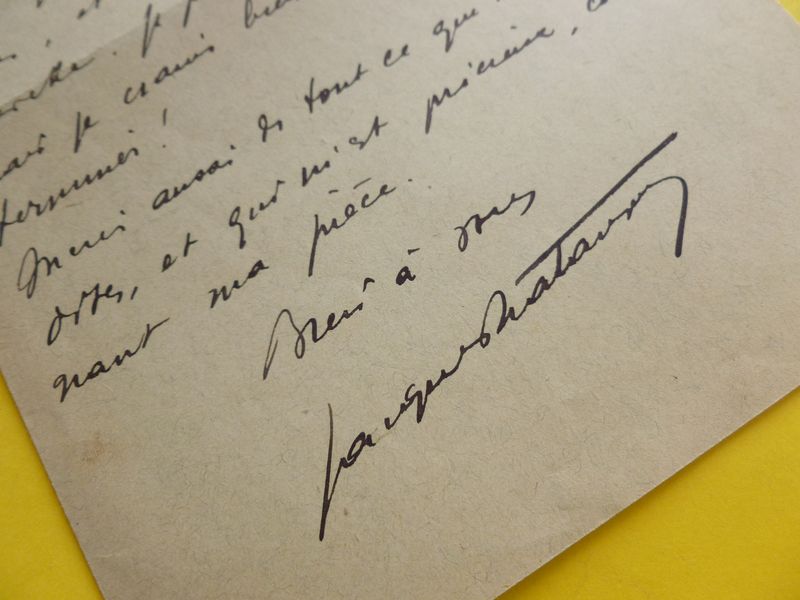 je
mais je crains
terminer !
Merci aussi de tout ce que
dites, et qui m'est précieux, co
nant ma pièce.
Bien à vous
Jacques Natanson